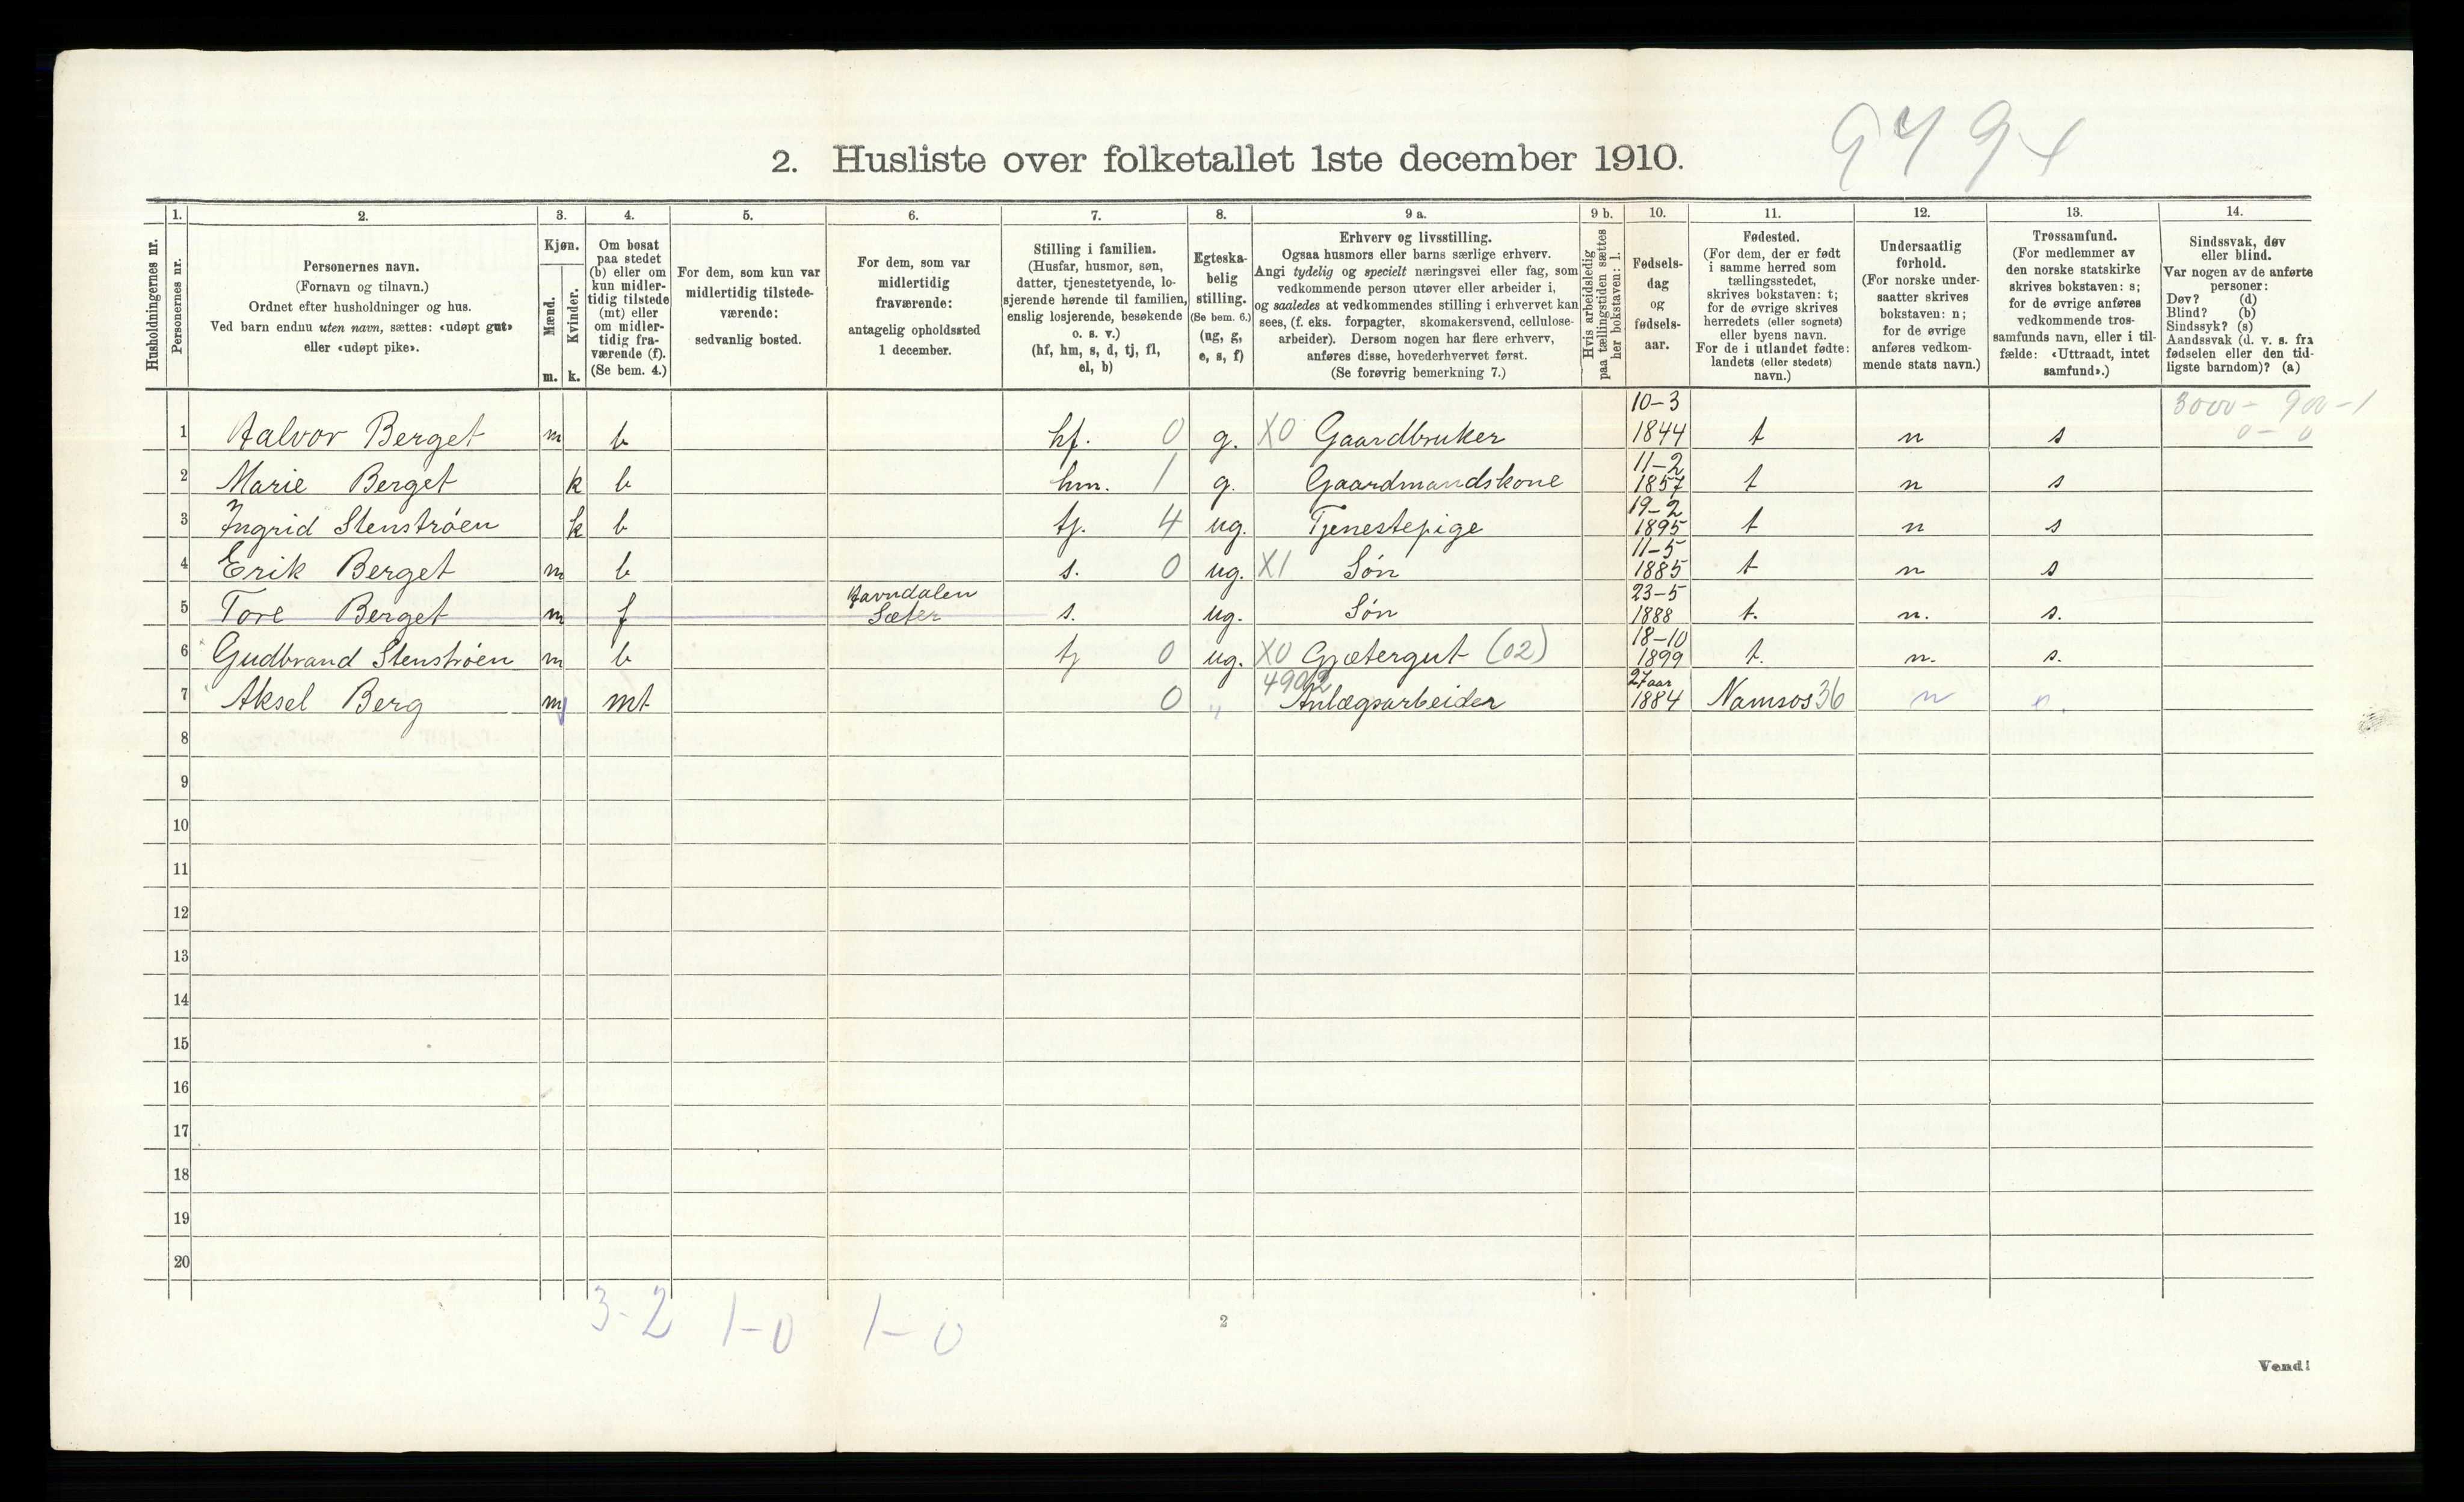 949x
2. Husliste over folketallet 1ste december 1910.
Husholdningernes nr.
1. Personernes nr.
2. Personernes navn.
(Fornavn og tilnavn.)
Ordnet efter husholdninger og hus.
Ved barn endnu uten navn, sættes: «udøpt gut»
eller «udøpt pike».
3. Kjøn.
Mænd. m.
Kvinder. k.
4. Om bosat
paa stedet
(b) eller om
kun midler-
tidig tilstede
(mt) eller
om midler-
tidig fra-
værende (f).
(Se bem. 4.)
5. For dem, som kun var
midlertidig tilstede-
værende:
sedvanlig bosted.
6. For dem, som var
midlertidig
fraværende:
antagelig opholdssted
1 december.
7. Stilling i familien.
(Husfar, husmor, søn,
datter, tjenestetyende, lo-
sjerende hørende til familien,
enslig losjerende, besøkende
o. s. v.)
(hf, hm, s, d, tj, fl,
el, b)
8. Egteska-
belig
stilling.
(Se bem. 6.)
(ug, g,
e, s, f)
9 a. Erhverv og livsstilling.
Ogsaa husmors eller barns særlige erhverv.
Angi tydelig og specielt næringsvei eller fag, som
vedkommende person utøver eller arbeider i,
og saaledes at vedkommendes stilling i erhvervet kan
sees, (f. eks. forpagter, skomakersvend, cellulose-
arbeider). Dersom nogen har flere erhverv,
anføres disse, hovederhvervet først.
(Se forøvrig bemerkning 7.)
9 b. Hvis arbeidsledig
paa tællingstiden sættes
her bokstaven: l.
10. Fødsels-
dag
og
fødsels-
aar.
11. Fødested.
(For dem, der er født
i samme herred som
tællingsstedet,
skrives bokstaven: t;
for de øvrige skrives
herredets (eller sognets)
eller byens navn.
For de i utlandet fødte:
landets (eller stedets)
navn.)
12. Undersaatlig
forhold.
(For norske under-
saatter skrives
bokstaven: n;
for de øvrige
anføres vedkom-
mende stats navn.)
13. Trossamfund.
(For medlemmer av
den norske statskirke
skrives bokstaven: s;
for de øvrige anføres
vedkommende tros-
samfunds navn, eller i til-
fælde: «Uttraadt, intet
samfund».)
14. Sindssvak, døv
eller blind.
Var nogen av de anførte
personer:
Døv? (d)
Blind? (b)
Sindssyk? (s)
Aandssvak (d. v. s. fra
fødselen eller den tid-
ligste barndom)? (a)
3000 - 900 - 1
0 - 0
1 Halvor Berget m b hf. 0 g. X0 Gaardbruker 10-3 1844 t n s
2 Marie Berget k b hm. 1 g. Gaardmandskone 11-2 1857 t n s
3 Ingrid Stenstrøen k b tj. 4 ug. Tjenestepige 19-2 1895 t n s
4 Erik Berget m b s. 0 ug. X1 Søn 11-5 1885 t n s
5 Tore Berget m f Savndalen Sæter s. ug. Søn 23-5 1888 t. n. s.
6 Gudbrand Stenstrøen m b tj 0 ug. X0 Gjætergut (02) 18-10 1899 t. n. s.
7 Aksel Berg m mt 0 " 4902 Anlægsarbeider 27 aar 1884 Namsos 36 n
8
9
10
11
12
13
14
15
16
17
18
19
20
3-2 1-0 1-0
2
Vend!